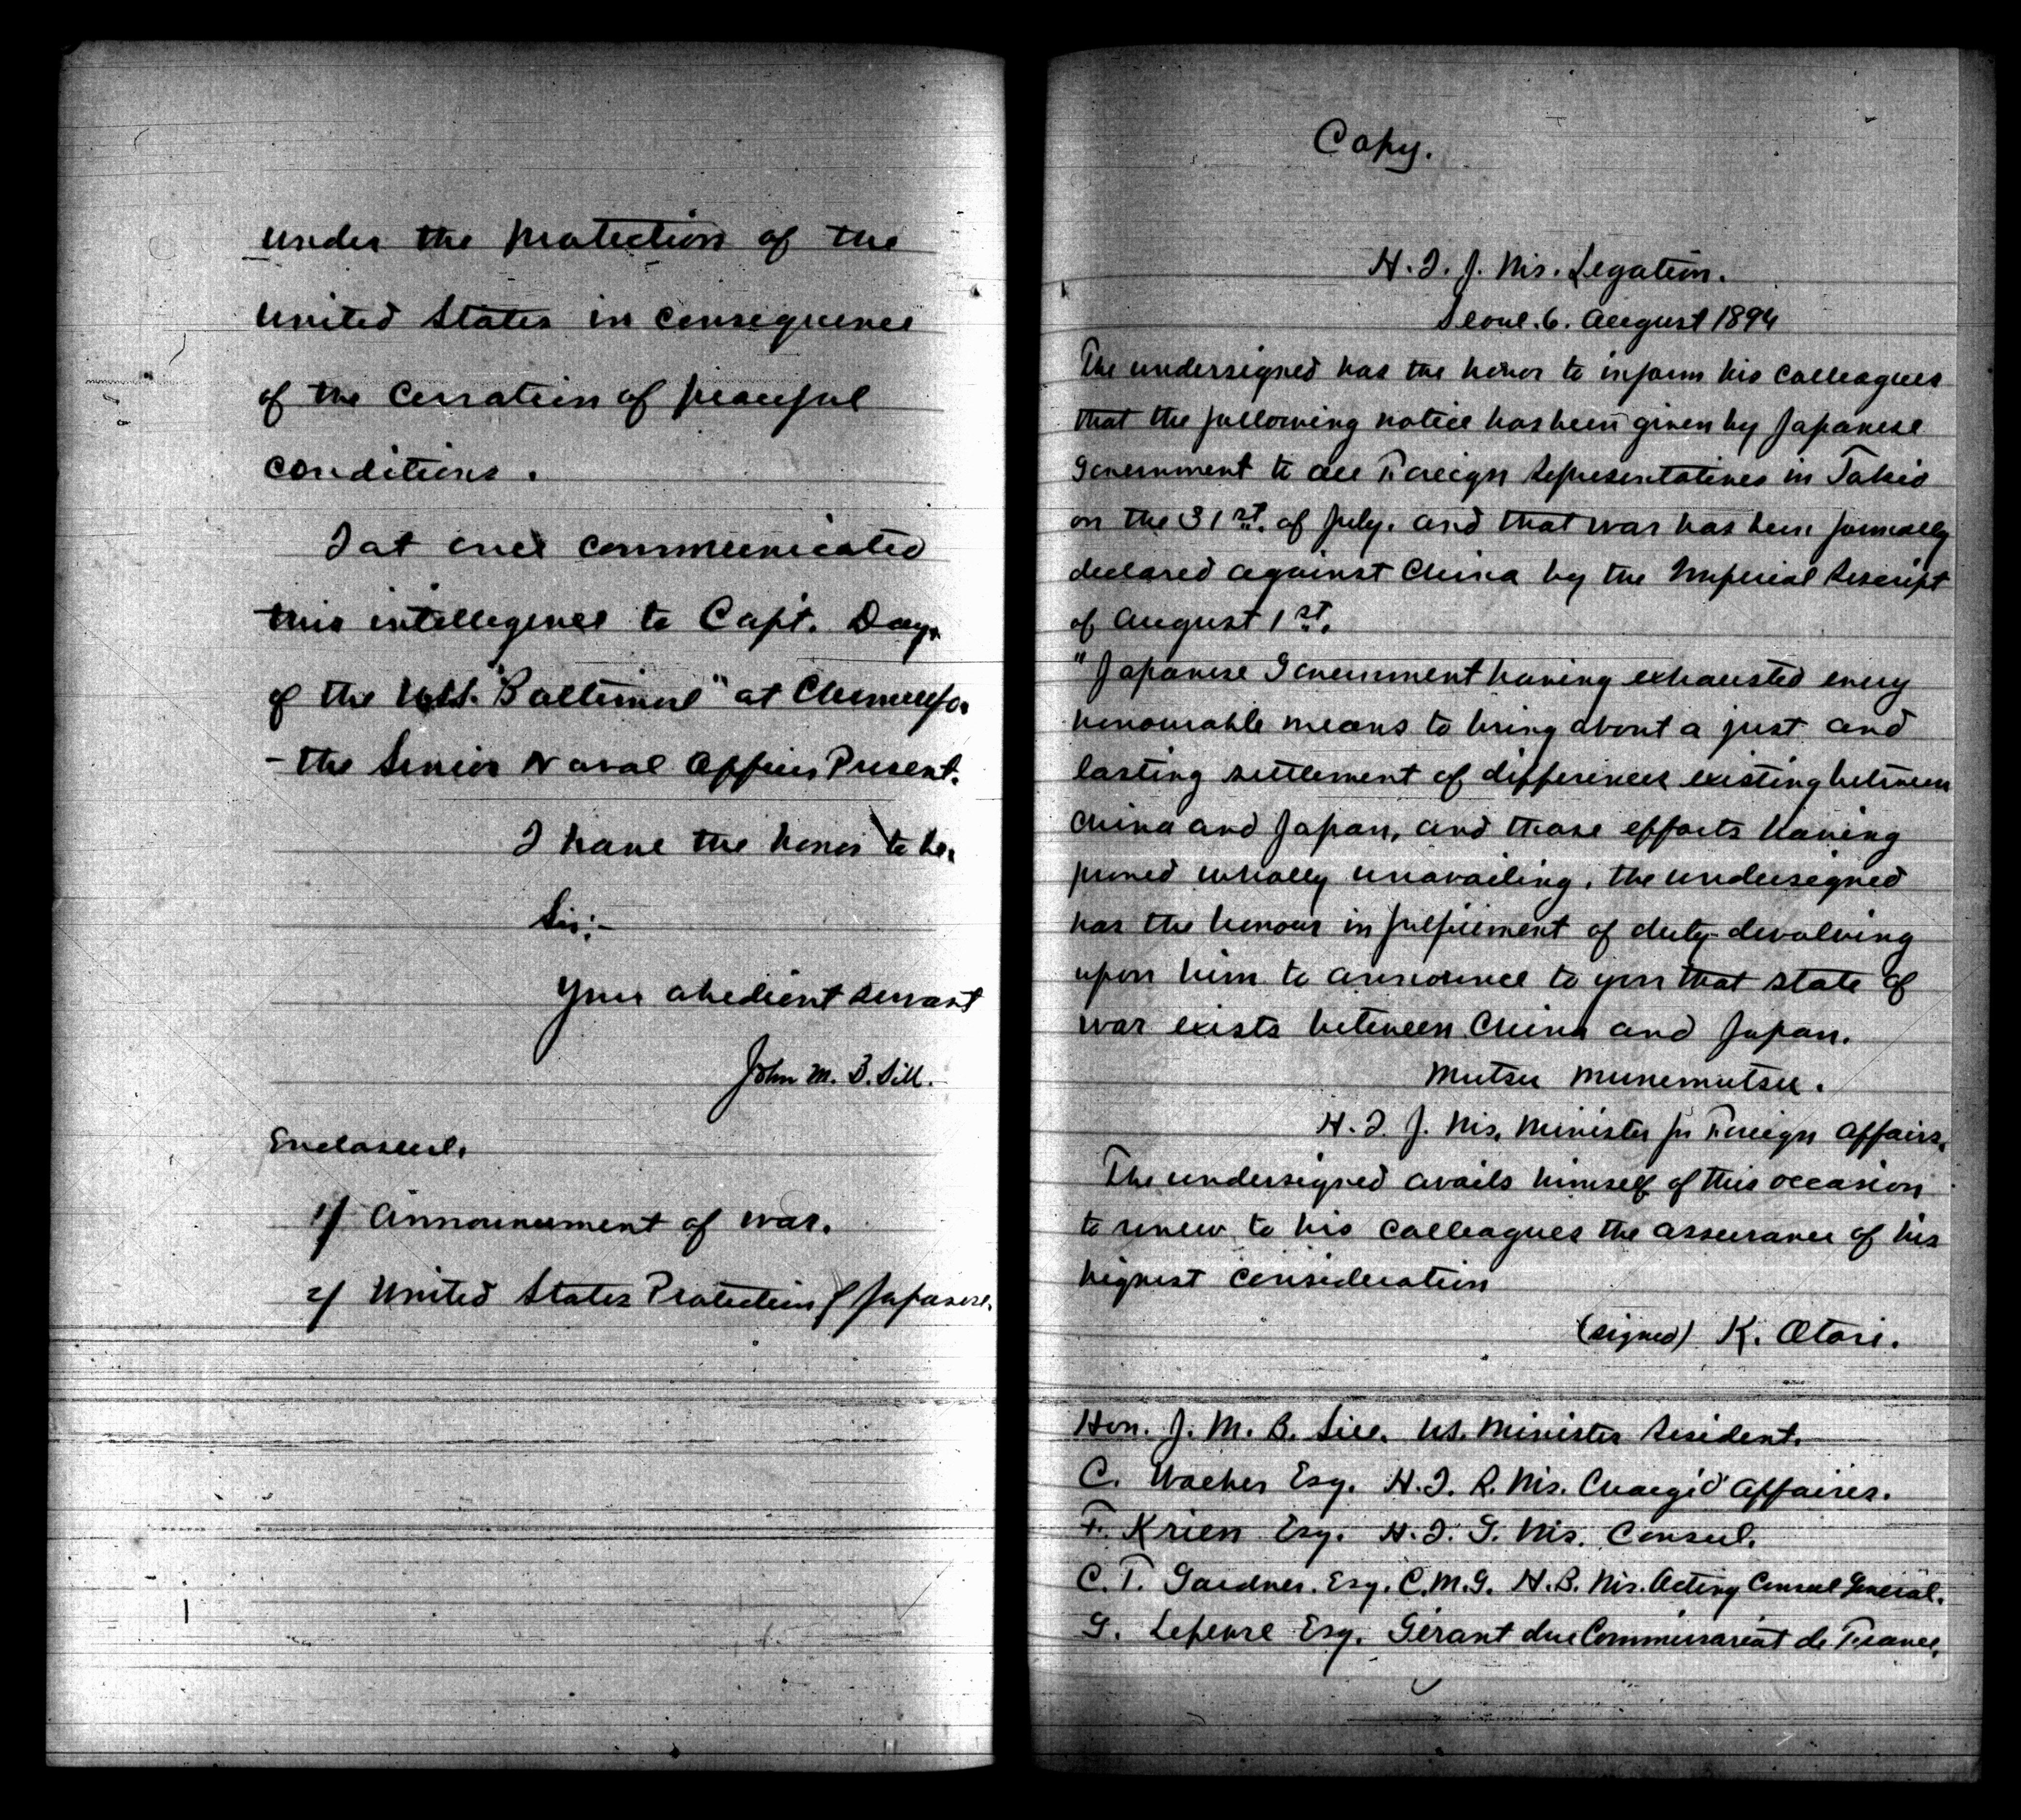 under the protection of the
United States in consequence
of the cessation of peaceful
conditions.
I at once communicated
this intellegence to Capt. Day,
of the U.S.S. "Baltimore" at Chemulpo.
- the Senior Naval Officer Present.
I have the honor to be,
Sir:-
Your obedient servant
John M. B. Sill.
Enclosure.
1/ Announcement of war.
2/ United States Protection of Japanese.
Copy.
H. I. J. Ms. Legation.
Seoul. 6. August 1894
The undersigned has the honor to inform his colleagues
that the following notice has been given by Japanese
Government to all Foreign Representatives in Tokio
on the 31st. of July. and that war has been formally
declared against China by the Imperial Rescript
of August 1st.
"Japanese Government having exhausted every
honourable means to bring about a just and
lasting settlement of differences existing between
China and Japan, and those efforts having
proved wholly unavailing, the undersigned
has the honour in fulfilment of duty devolving
upon him to announce to you that state of
war exists between China and Japan.
Mutsu Munemutsu.
H. I. J. Ms. Minister for Foreign Affairs.
The undersigned avails himself of this occasion
to renew to his colleagues the assurance of his
highest consideration
(signed) K. Otori.
Hon. J. M. B. Sill. U.S. Minister Resident.
C. Waeber Esq. H. I. R. Ms. Chargé d'Affaires.
F. Krien Esq. H. I. G. Ms. Consul.
C. T. Gardner. Esq. C.M.G. H. B. Ms. Acting Consul General.
G. Lefevre Esq. Gérant du Commissariat de France.